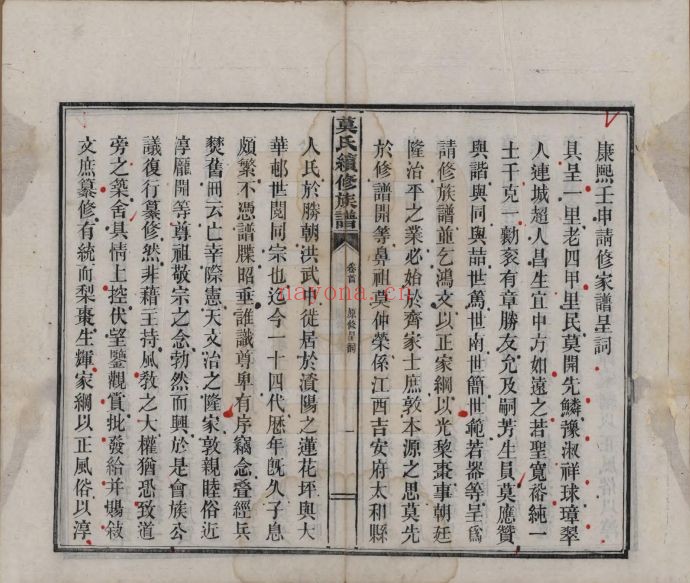 康熙壬申請修家譜呈詞
具呈一里老四甲里民莫開先鱗豫淑祥球璋翠
人連城超人昌生宜中方如遠之若聖寬裕純一
士千克一勷袞有章勝友允及嗣芳生員莫應贊
與諧與同與喆世篤世南世簡世範若器等呈爲
請修族譜並乞鴻文以正家綱以光黎棗事朝廷
隆治平之業必始於齊家士庶敦本源之思莫先
於修譜開等鼻祖莫仲榮係江西吉安府太和縣
莫氏續修族譜
卷首
原修呈詞
一
人氏於勝朝洪武中徙居於瀆陽之蓮花坪與大
華邨世閥同宗也迄今一十四代歷年既久子息
頗繁不憑譜牒昭垂誰識尊卑有序竊念疊經兵
燹舊冊云亡幸際憲天文治之隆家敦親睦俗近
淳龎開等尊祖敬宗之念勃然而興於是會族公
議復行纂修然非藉主持風教之大權猶恐致道
旁之築舍具情上控伏望鑒觀賞批發給并賜敍
文庶纂修有統而梨棗生輝家綱以正風俗以淳
nayona.cn